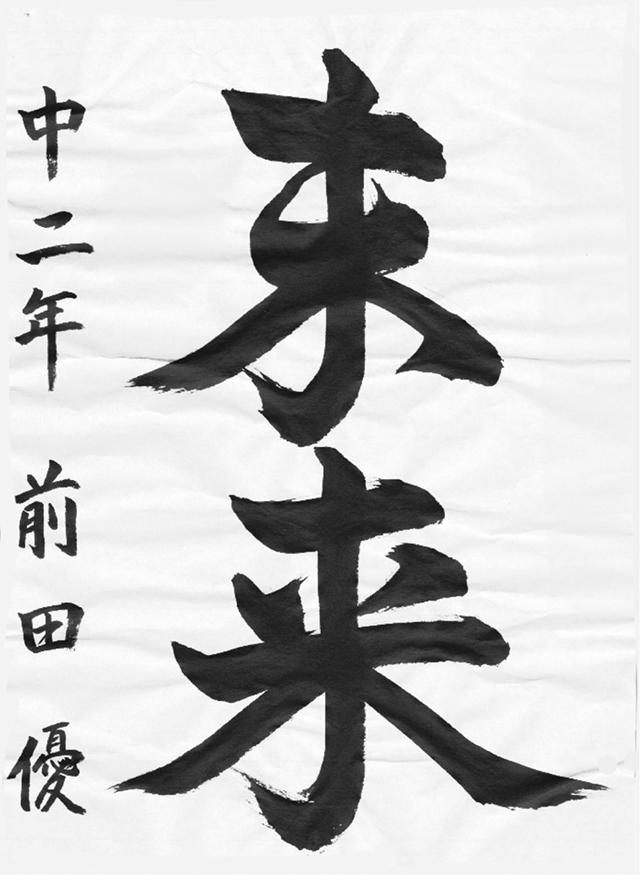 未来
中二年 前田優